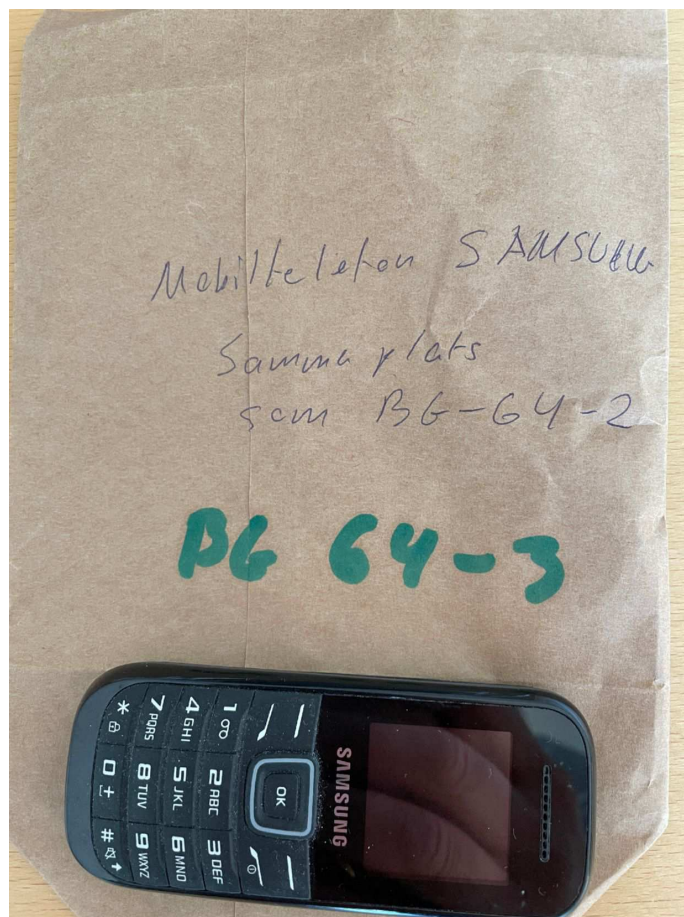 Mobiltelefon SAMSUNG
Samma plats
som BG-64-2
BG 64-3
SAMSUNG
OK
1
2 ABC
3 DEF
4 GHI
5 JKL
6 MNO
7 PQRS
8 TUV
9 WXYZ
*
0 +
#